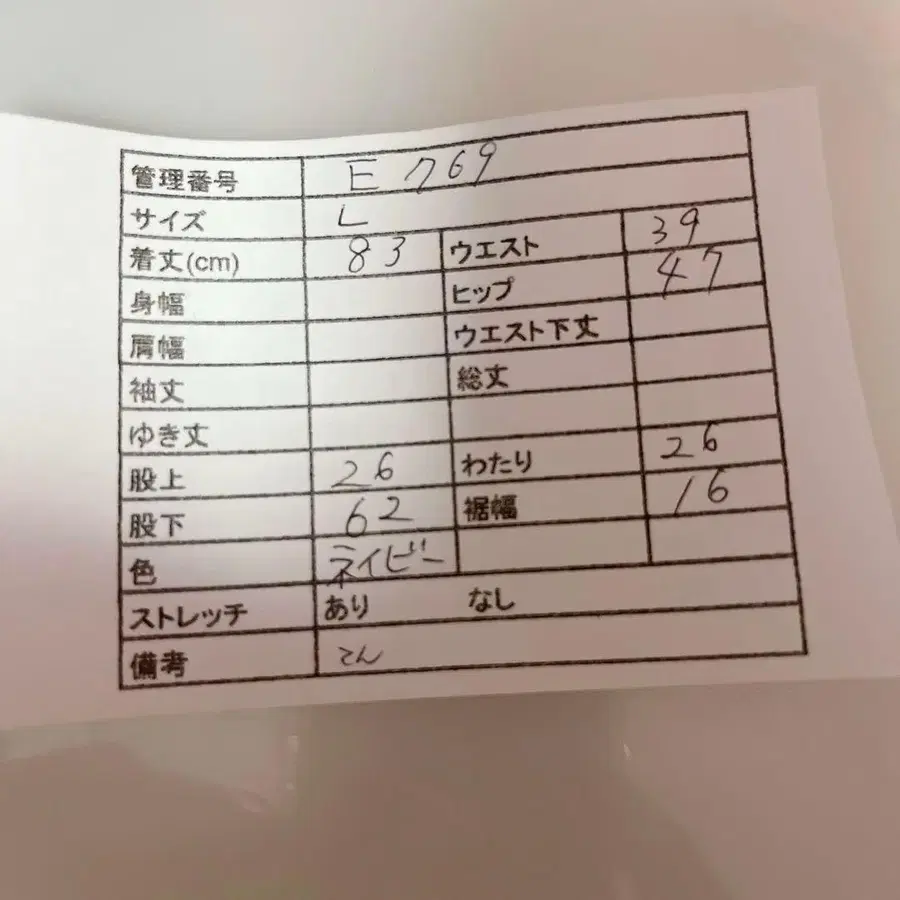 管理番号 E 769
サイズ L
着丈(cm) 83 ウエスト 39
身幅 ヒップ 47
肩幅 ウエスト下丈
袖丈 総丈
ゆき丈
股上 26 わたり 26
股下 62 裾幅 16
色 ネイビー
ストレッチ あり なし
備考 てん